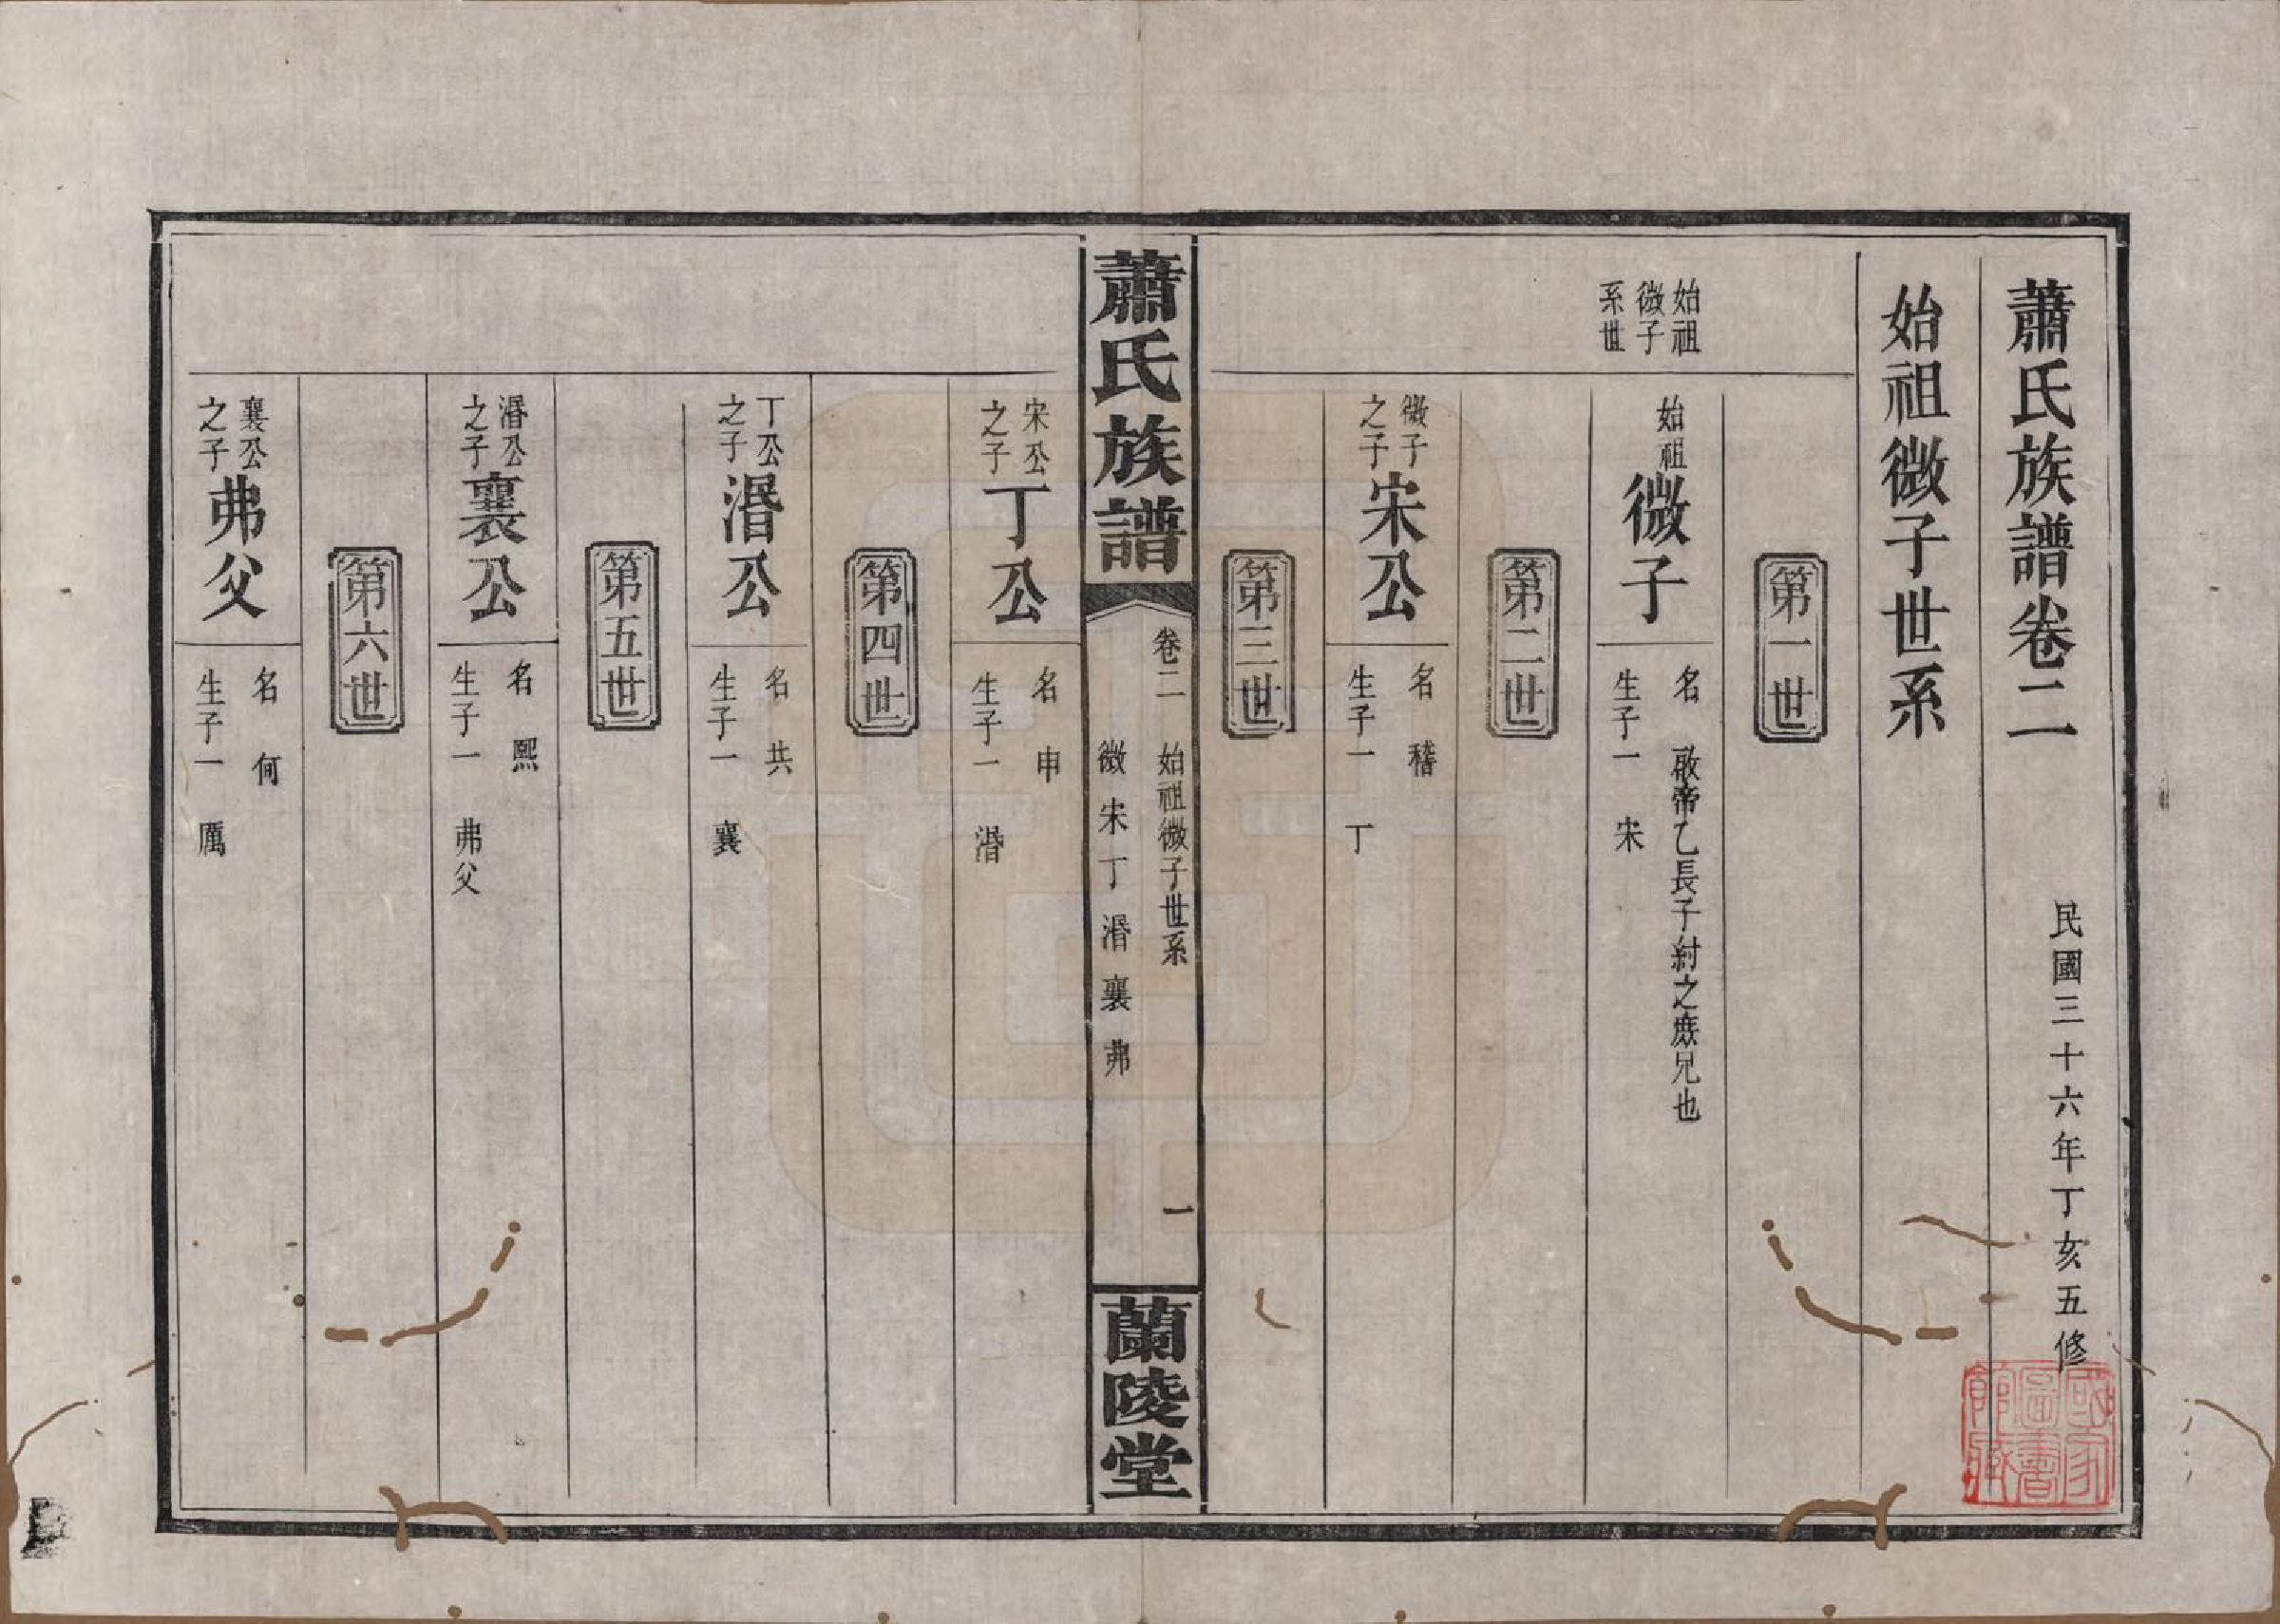 蕭氏族譜卷二
民國三十六年丁亥五修
始祖微子世系
始祖
微子
系世
第一世
始祖
微子
名 啟帝乙長子紂之庶兄也
生子一 宋
第二世
微子
之子
宋公
名 稽
生子一 丁
第三世
蕭氏族譜
卷二 始祖微子世系
微 宋 丁 湣 襄 弗
一
蘭陵堂
宋公
之子
丁公
名 申
生子一 湣
第四世
丁公
之子
湣公
名 共
生子一 襄
第五世
湣公
之子
襄公
名 熙
生子一 弗父
第六世
襄公
之子
弗父
名 何
生子一 厲
國家
圖書
館藏